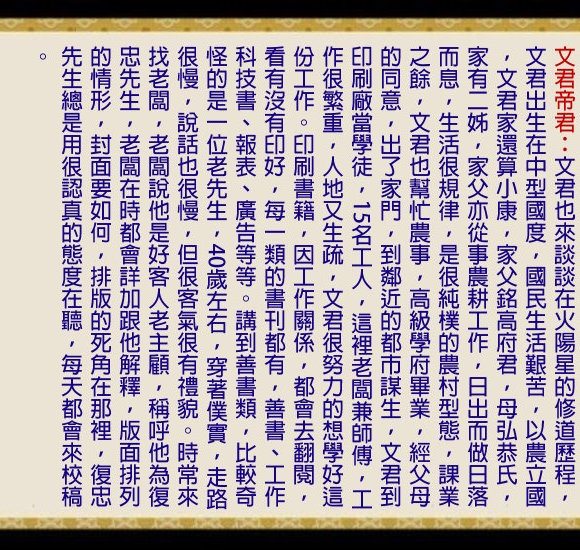 文君帝君：文君也來談談在火陽星的修道歷程，
文君出生在中型國度，國民生活艱苦，以農立國
，文君家還算小康，家父銘高府君，母弘恭氏，
家有二姊，家父亦從事農耕工作，日出而做日落
而息，生活很規律，是很純樸的農村型態，課業
之餘，文君也幫忙農事，高級學府畢業，經父母
的同意，出了家門，到鄰近的都市謀生，文君到
印刷廠當學徒，15名工人，這裡老闆兼師傅，工
作很繁重，人地又生疏，文君很努力的想學好這
份工作。印刷書籍，因工作關係，都會去翻閱，
看有沒有印好，每一類的書刊都有，善書、工作
科技書、報表、廣告等等。講到善書類，比較奇
怪的是一位老先生，40歲左右，穿著僕實，走路
很慢，說話也很慢，但很客氣很有禮貌。時常來
找老闆，老闆說他是好客人老主顧，稱呼他為復
忠先生，老闆在時都會詳加跟他解釋，版面排列
的情形，封面要如何，排版的死角在那裡，復忠
先生總是用很認真的態度在聽，每天都會來校稿
。